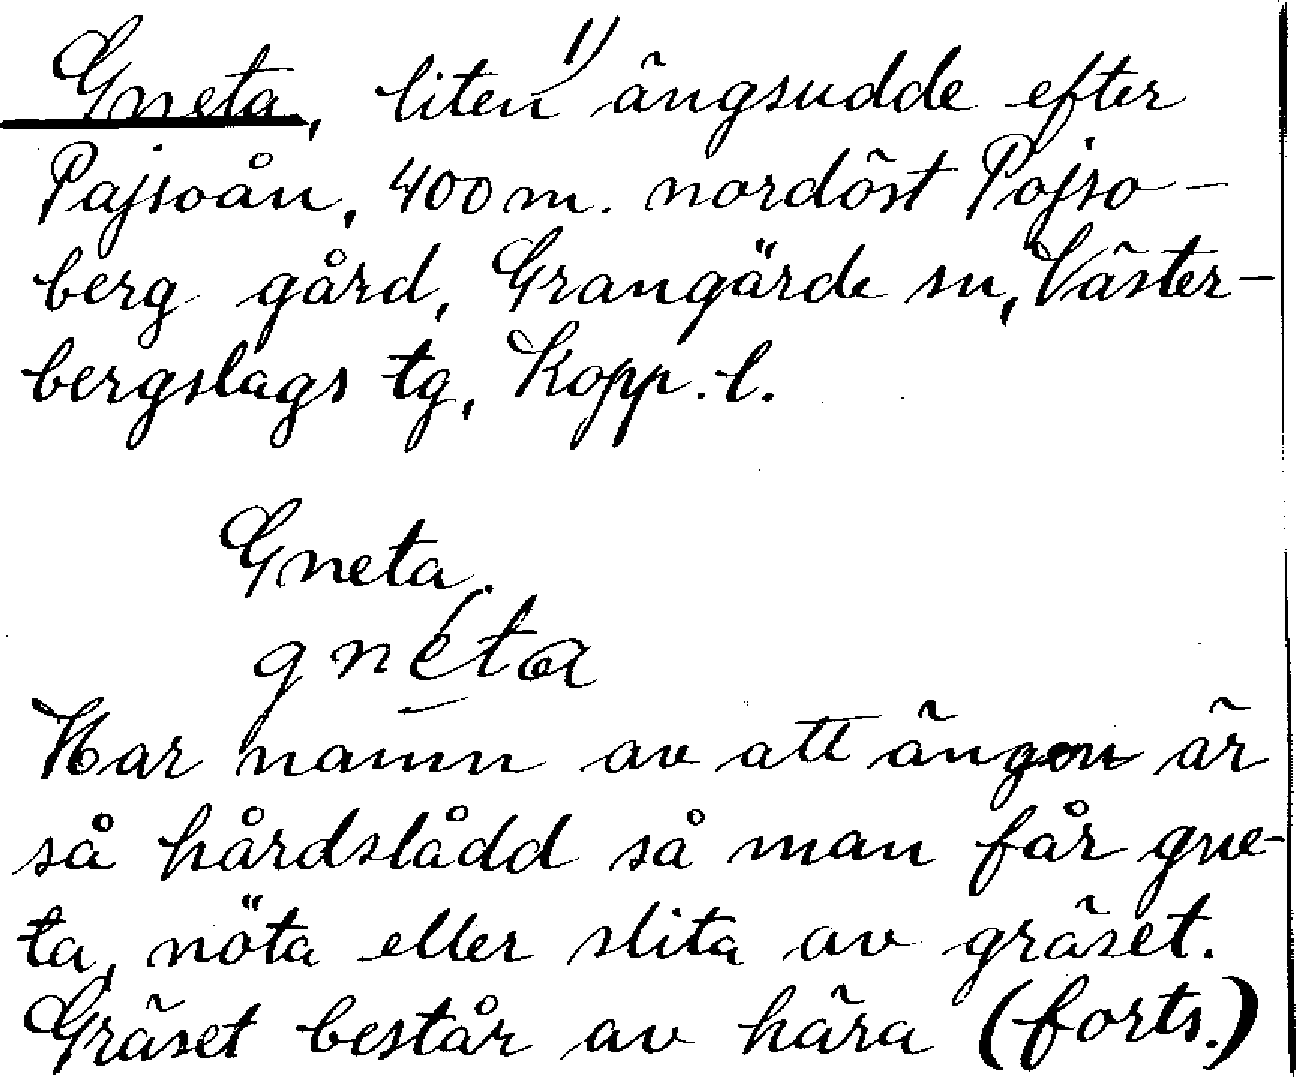 Gneta, liten 1) ängsudde efter
Pajsoån, 400 m. nordöst Pojso-
berg gård, Grangärde sn, Väster-
bergslags tg, Kopp. l.
Gneta.
gnéta
Har namn av att ängen är
så hårdslådd så man får gne-
ta, nöta eller slita av gräset.
Gräset består av hära (forts.)